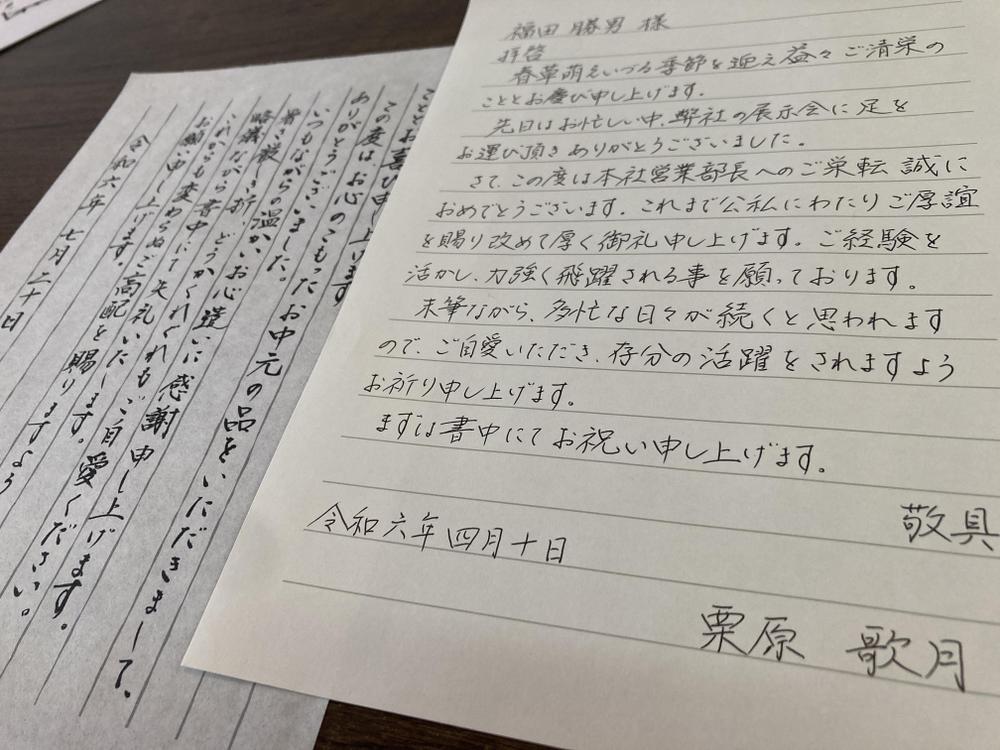 福田 勝男 様
拝啓
春草萌えいづる季節を迎え益々ご清栄の
こととお慶び申し上げます。
先日はお忙しい中、弊社の展示会に足を
お運び頂きありがとうございました。
さて、この度は本社営業部長へのご栄転 誠に
おめでとうございます。これまで公私にわたりご厚誼
を賜り改めて厚く御礼申し上げます。ご経験を
活かし、力強く飛躍される事を願っております。
末筆ながら、多忙な日々が続くと思われます
ので、ご自愛いただき、存分の活躍をされますよう
お祈り申し上げます。
まずは書中にてお祝い申し上げます。
敬具
令和六年四月十日
栗原 歌月
こととお喜び申し上げます
この度は、お心のこもったお中元の品をいただきまして、
ありがとうございました。
いつもながらの温かいお心遣いに感謝申し上げます。
暑さ厳しき折、どうかくれぐれもご自愛ください。
略儀ながら書中にて失礼いたします。
これからも変わらぬご高配を賜りますよう
お願い申し上げます。
令和六年 七月二十日